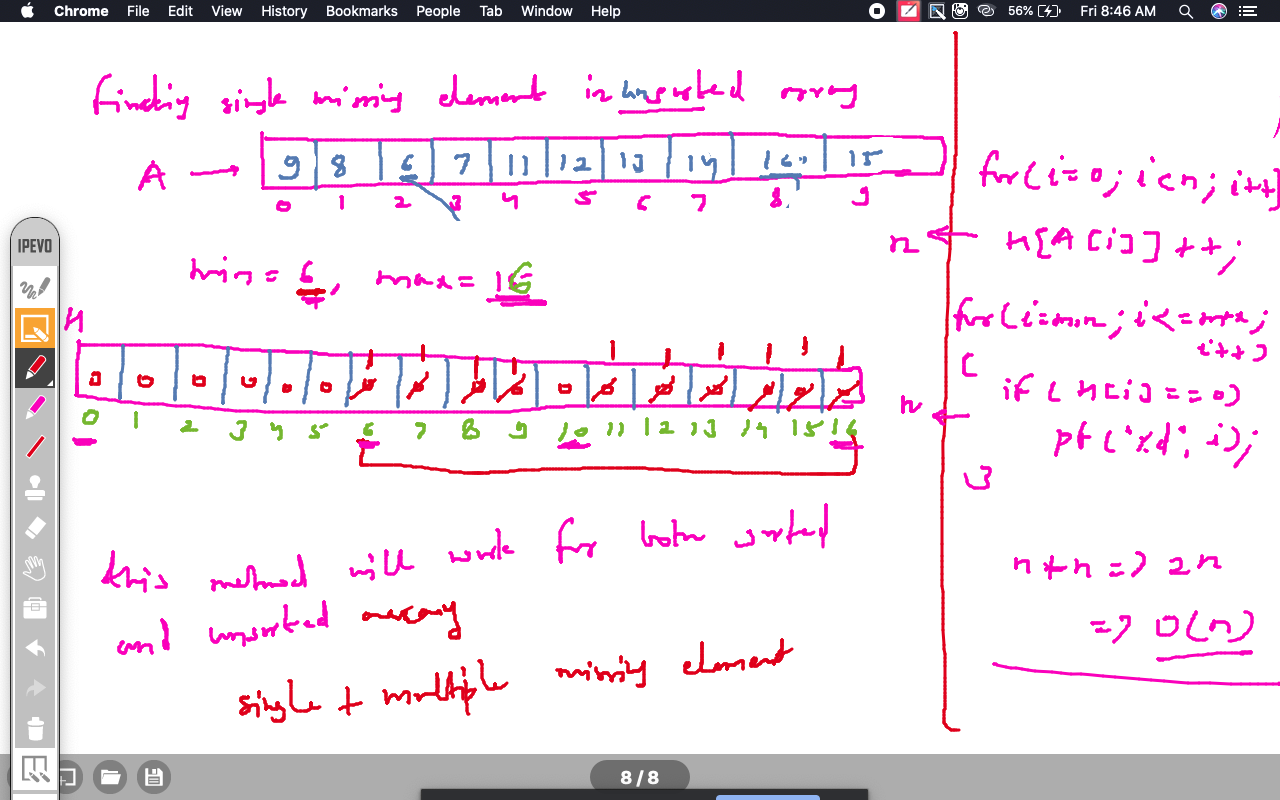 Chrome File Edit View History Bookmarks People Tab Window Help 56% Fri 8:46 AM
finding single missing element in unsorted array
A → 9 8 6 7 11 12 13 14 16 15
0 1 2 3 4 5 6 7 8 9
min = 6, max = 16
H
1 1 1 1 1 1 1 1 1 1
0 0 0 0 0 0 0 0 0 0 0 0 0 0 0 0 0
0 1 2 3 4 5 6 7 8 9 10 11 12 13 14 15 16
this method will work for both sorted
and unsorted array
single + multiple missing element
for(i=0; i<n; i++)
n ← H[A[i]]++;
for(i=min; i<=max;
i++)
{
if (H[i]==0)
n ← pf("%d", i);
}
n+n => 2n
=> O(n)
IPEVO
8 / 8